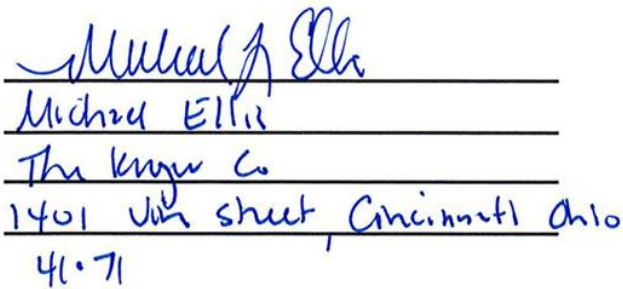 Michael J Ellis
Michael Ellis
The Kroger Co
1401 Vin street, Cincinnati Ohio
41.71